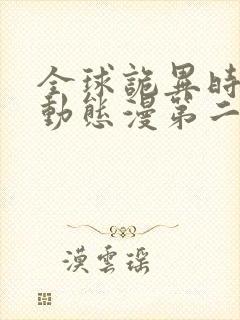 全球詭異時
動態漫第二
漠雲瑤